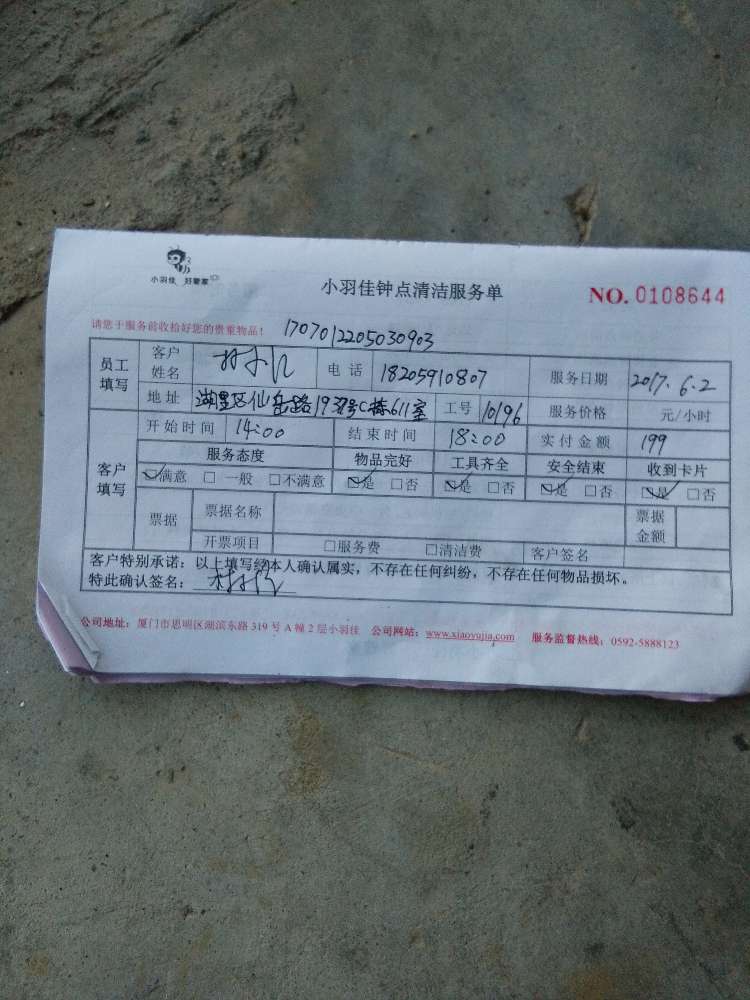 小羽佳 好管家
小羽佳钟点清洁服务单
NO. 0108644
请您于服务前收拾好您的贵重物品！ 1707012205030903
员工填写 客户姓名 电话 18205910807 服务日期 2017.6.2
地址 湖里区仙岳路 号C栋611室 工号 10196 服务价格 元/小时
客户填写 开始时间 14:00 结束时间 18:00 实付金额 199
服务态度 物品完好 工具齐全 安全结束 收到卡片
☑满意 □一般 □不满意 ☑是 □否 ☑是 □否 ☑是 □否 ☑是 □否
票据 票据名称 票据金额
开票项目 □服务费 □清洁费 客户签名
客户特别承诺：以上填写经本人确认属实，不存在任何纠纷，不存在任何物品损坏。
特此确认签名：
公司地址：厦门市思明区湖滨东路 319 号 A 幢 2 层小羽佳 公司网站：www.xiaoyujia.com 服务监督热线：0592-5888123